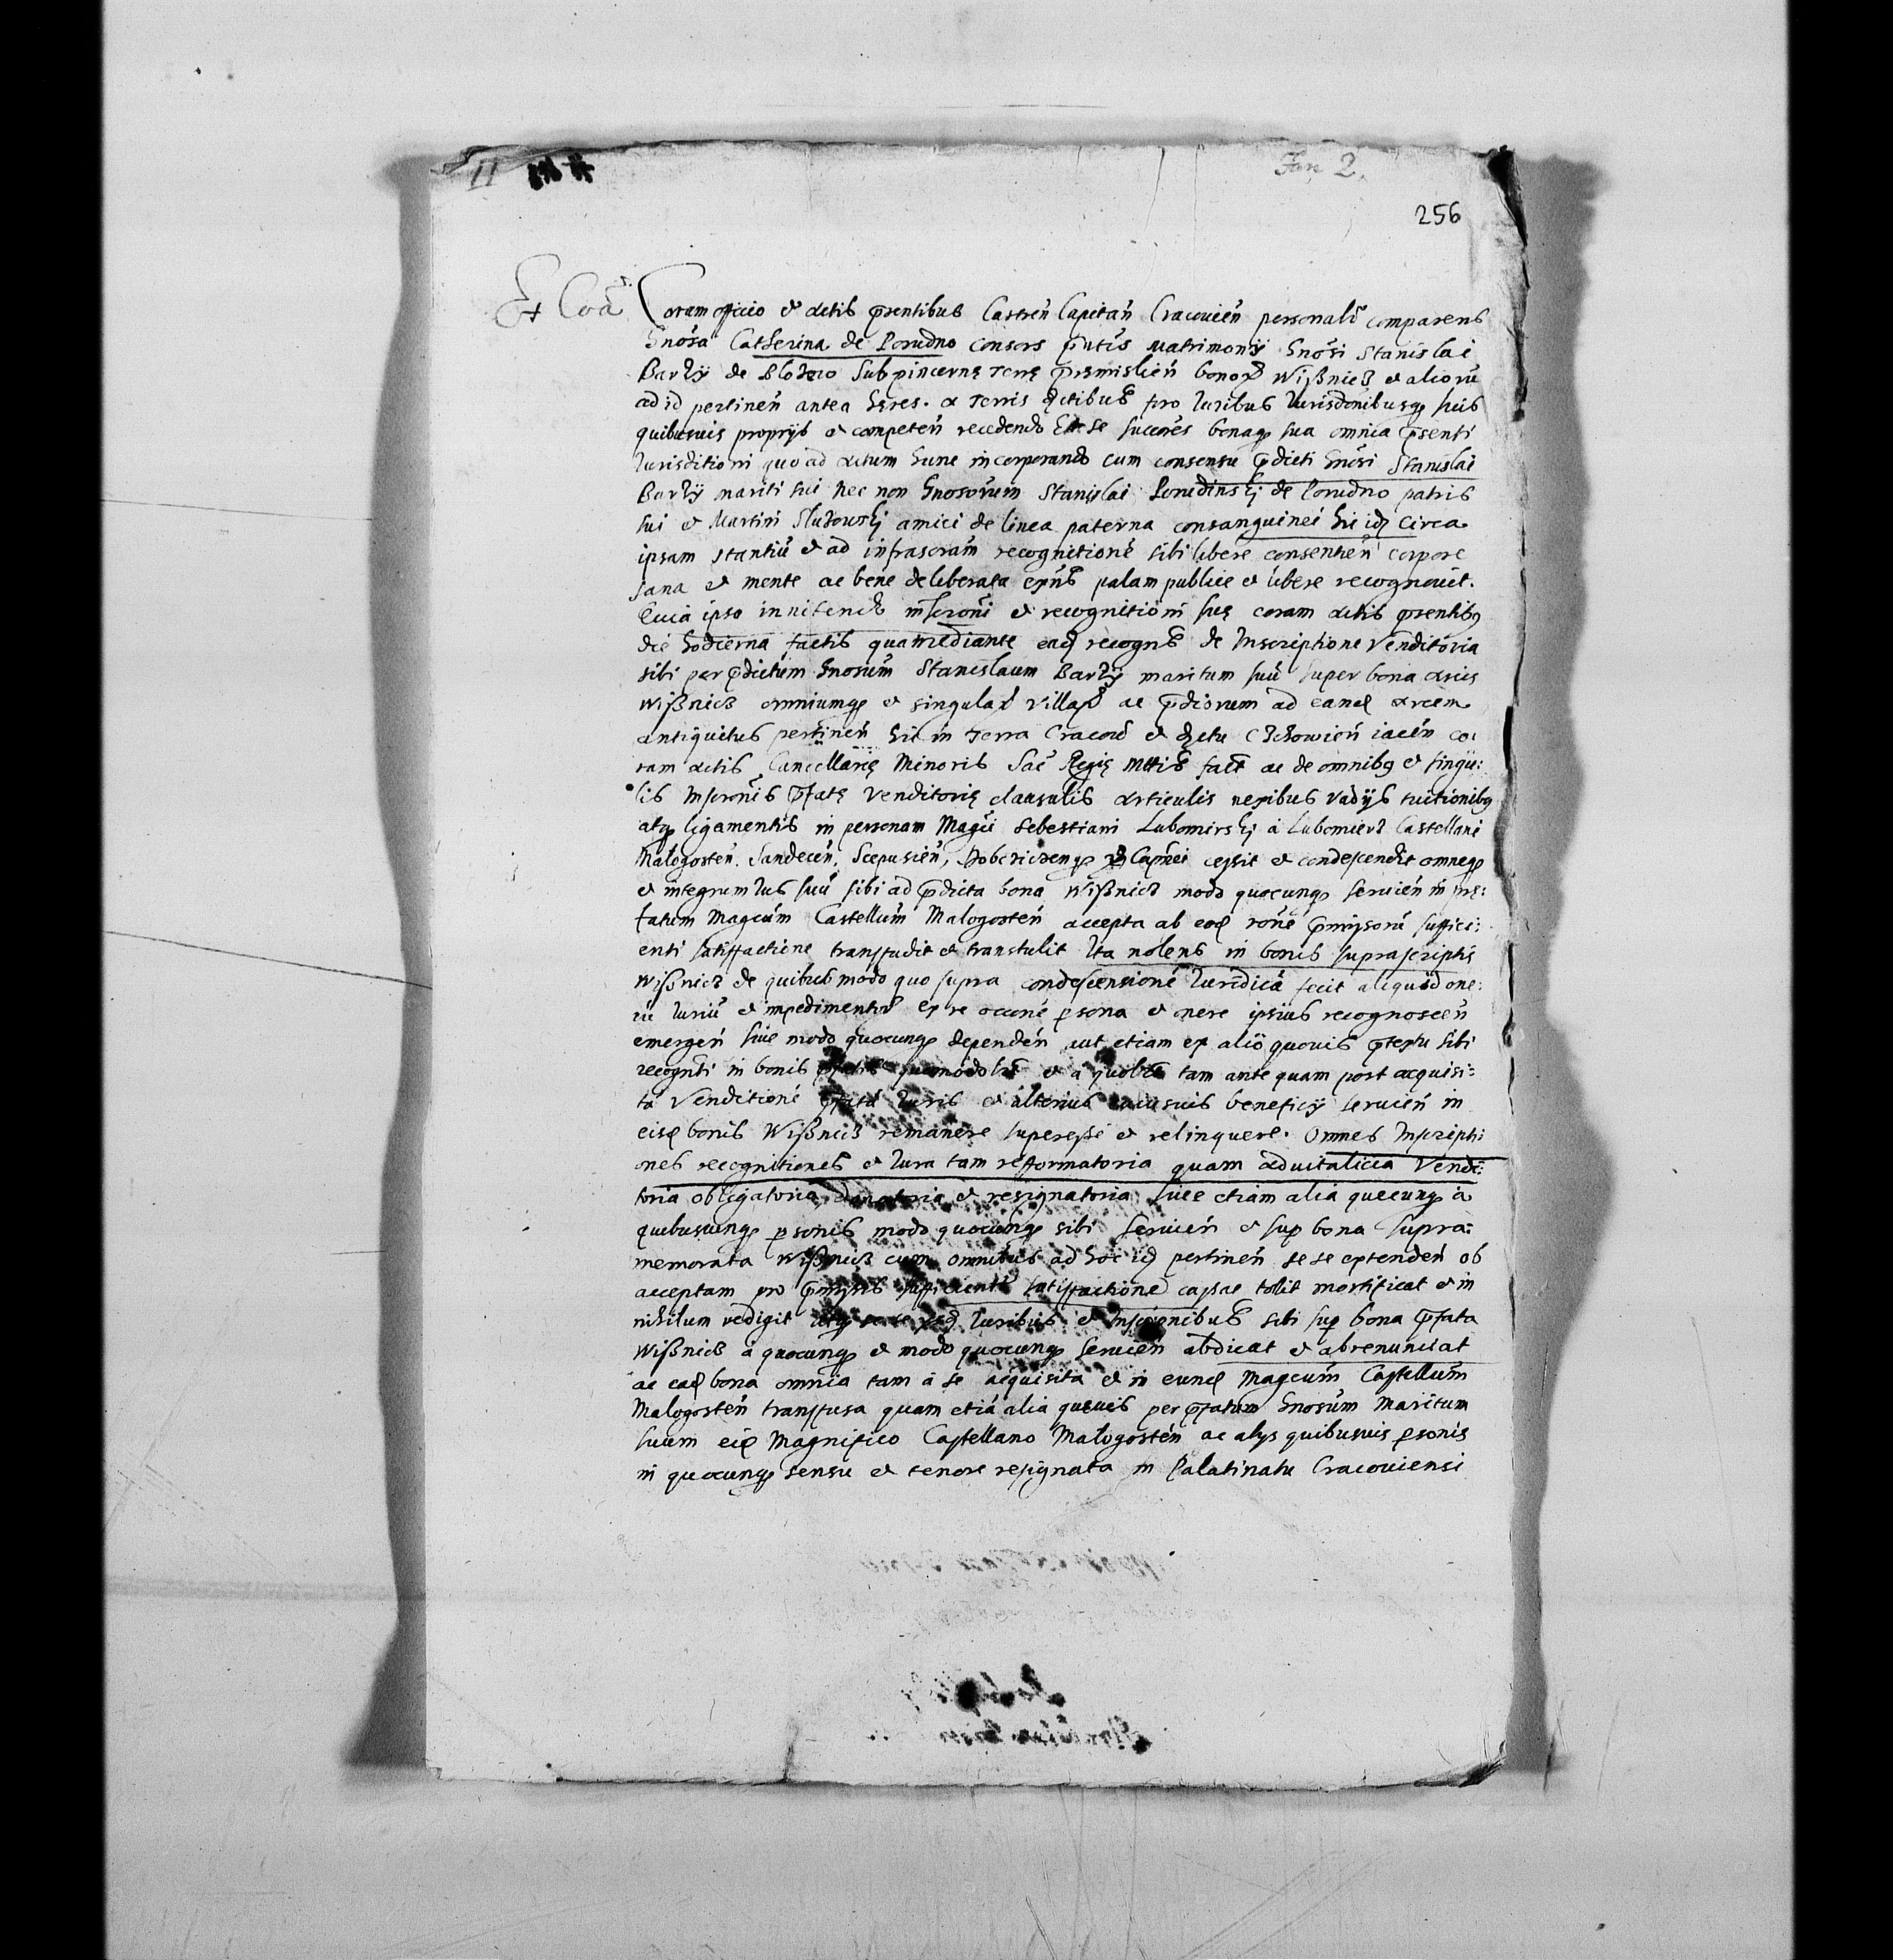 11
Fon 2.
256
Coram officio et actis p̃sentibus Castreñ Capitañ Cracovieñ personalr̃ comparens
Gnosa Catherina de Porudno consors Matrimonÿ Gnosi Stanislai
Barzÿ de Blozew Subpincernę terrę premislieñ bonoꝝ Wißnicz et alioru
ad id pertineñ antea hęres. a terris pro Iuribus Iurisdonibusqꝫ suis
quibusuis proprijs et competeñ recedendo se succores bonaqꝫ sua omnia p̃senti
Iurisditioni quo ad actum hunc incorporando cum consensu p̃dicti Gnosi Stanislai
Barzÿ mariti sui nec non Gnosorum Stanislai Porudinskÿ de Porudno patris
sui et Martini amici de linea paterna consanguinei circa
ipsam stantiũ et ad infrascram recognitionẽ sibi libere consentieñ corpore
sana et mente ac bene deliberata palam publice et libere recognovit.
Quia ipsa innitendo inscroni et recognitioni suę coram actis p̃sentibꝫ
die hodierna factis qua mediante eadẽ recogns de Inscriptione Venditoria
sibi per p̃dictum Gnosum Stanislaum Barzÿ maritum suũ super bona arcis
Wißnicz omniumqꝫ et singulaꝝ villaꝝ ac p̃diorum ad eandẽ arcem
antiquitus pertineñ in terra Cracoũ et Czchowieñ iaceñ co:
ram actis Cancellarię Minoris Sac̃ Regię Mttis fact̃ ac de omnibꝫ et singu:
lis Inscronis p̃fatę Venditorię clausulis articulis nexibus vadÿs tuitionibꝫ
atqꝫ ligamentis in personam Magci Sebestiani Lubomirskÿ a Lubomierz Castellani
Malogosteñ. Sandeceñ, Scepusieñ, Dobczicenqꝫ Capnei cessit et condescendit omneqꝫ
et integrum Ius suũ sibi ad p̃dicta bona Wißnicz modo quocunqꝫ servieñ in prę:
fatum Magcum Castellum Malogosteñ accepta ab eodẽ rone p̃missoru suffici:
enti satisfactione transfudit et transtulit Ita nolens in bonis suprascriptis
Wißnicz de quibus modo quo supra condescensionẽ Iuridicã fecit aliquid one:
ru Iuriũ et impedimentoꝝ ex re occne p̃sona et opere ipsius recognosceñ
emergeñ sive modo quocunqꝫ dependeñ aut etiam ex alio quovis p̃textu sibi
recognti in bonis p̃fatis quomodolt̃ et a quolt̃ tam ante quam post acquisi:
tã Venditionẽ p̃fatã Iuris et alterius cuiusvis beneficÿ servieñ in
eisdẽ bonis Wißnicz remanere superesse et relinquere. Omnes Inscripti:
ones recognitiones et Iura tam reformatoria quam advitalicia Vendi:
toria obligatoria donatoria et resignatoria sive etiam alia quęcunqꝫ a
quibusvinqꝫ p̃sonis modo quocunqꝫ sibi servieñ et sup̃ bona supra:
memorata Wißnicz cum omnibus ad hoc idẽ pertineñ se se extendeñ ob
acceptam pro p̃missis sufficientẽ satisfactionẽ cassat tollit mortificat et in
nihilum redigit Iuribus et Inscronibus sibi sup̃ bona p̃fata
Wißnicz a quocunqꝫ et modo quocunqꝫ servieñ abdicat et abrenunciat
ac eadẽ bona omnia tam a se acquisita et in eundẽ Magcum Castellum
Malogosteñ transfusa quam etiã alia quęvis per p̃fatum Gnosum Maritum
suum eidẽ Magnifico Castellano Malogosteñ ac alÿs quibusvis p̃sonis
in quocunqꝫ sensu et tenore resignata in Palatinatu Cracoviensi